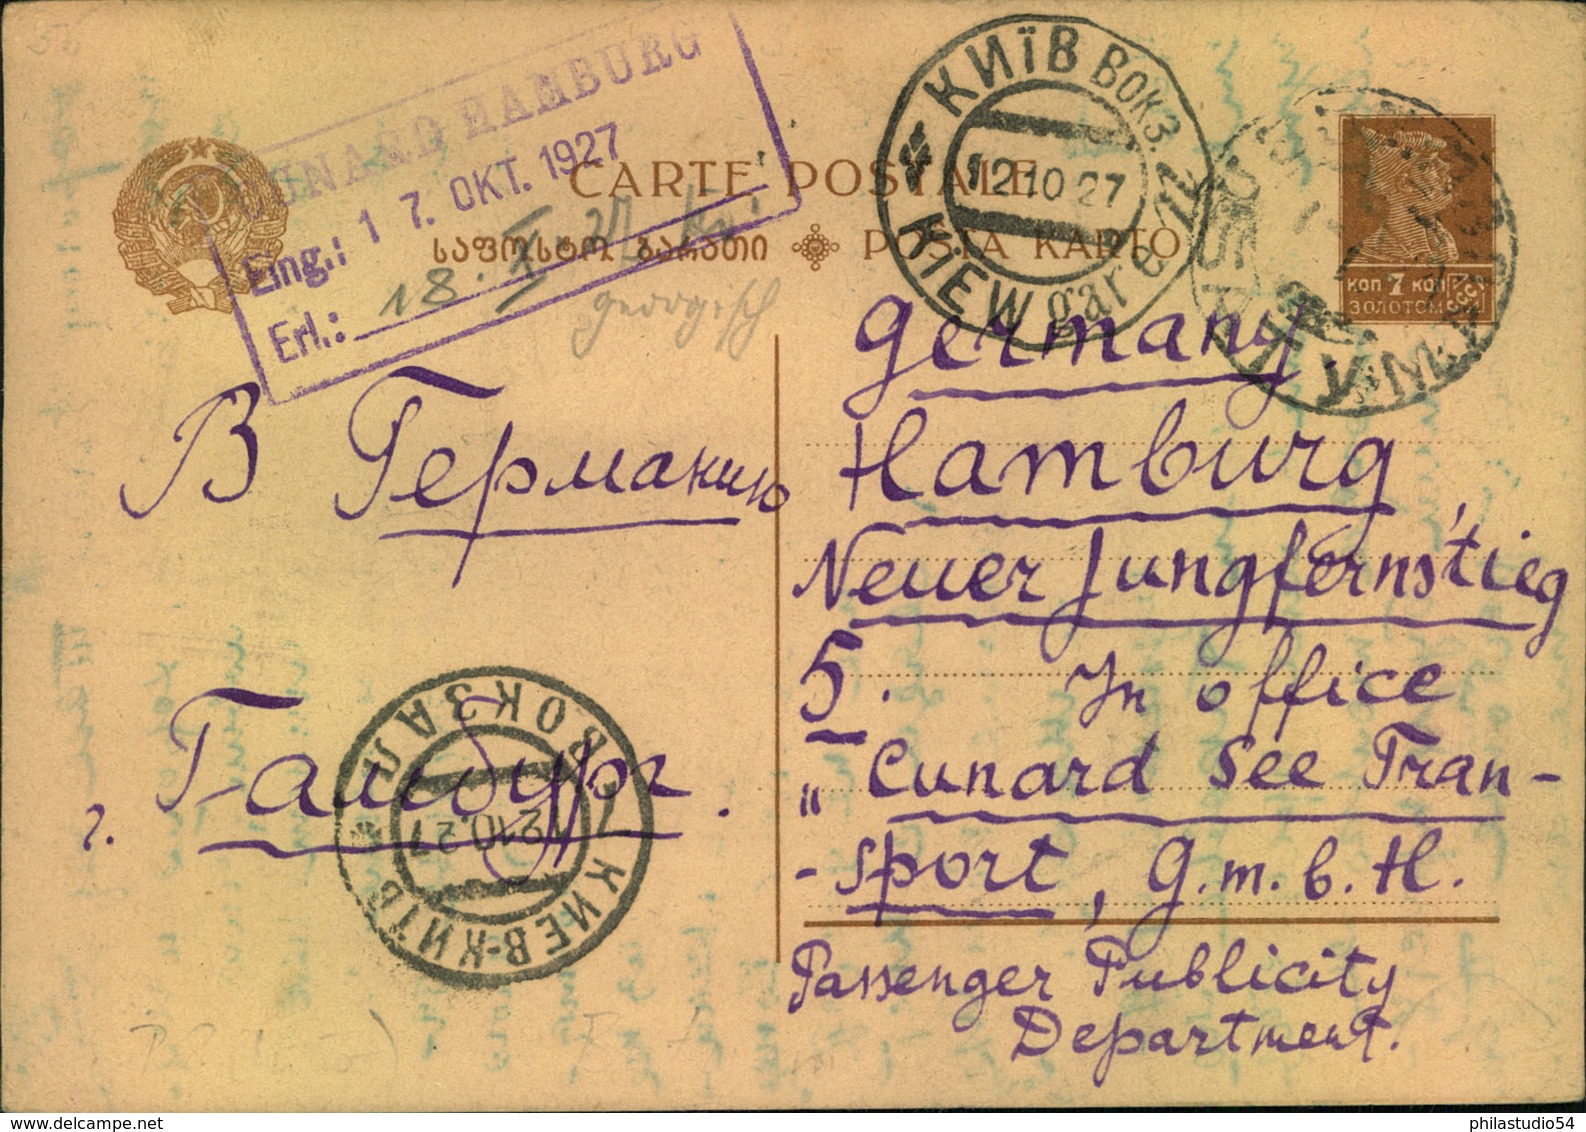 CUNARD HAMBURG
Eing.: 1 7. OKT. 1927
Erl.: 18. X.
georgisch
CARTE POSTALE
საფოსტო ბარათი POSTA KARTO
КИЇВ Вокз.
12 10 27
KIEW gare
КОП 7 КОП
ЗОЛОТОМ
СССР
В Германию
г. Гамбург.
КИЕВ-КИЇВ
ВОКЗАЛ
12.10.27
Germany.
Hamburg,
Neuer Jungfernstieg
5. In office
„Cunard See Tran-
-sport, G.m.b.H.
Passenger Publicity
Department.
philastudio54
www.delcampe.net